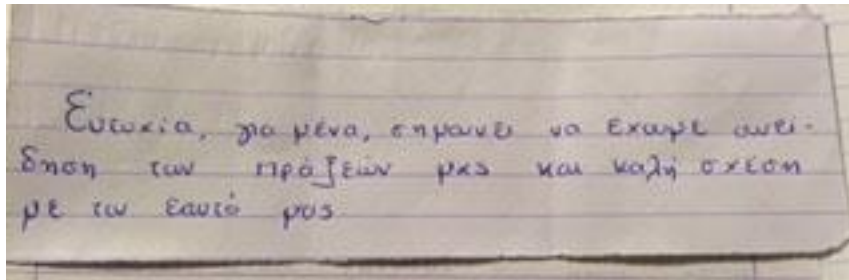 Ευτυχία, για μένα, σημαίνει να έχουμε συνεί-
δηση των πράξεών μας και καλή σχέση
με τον εαυτό μας